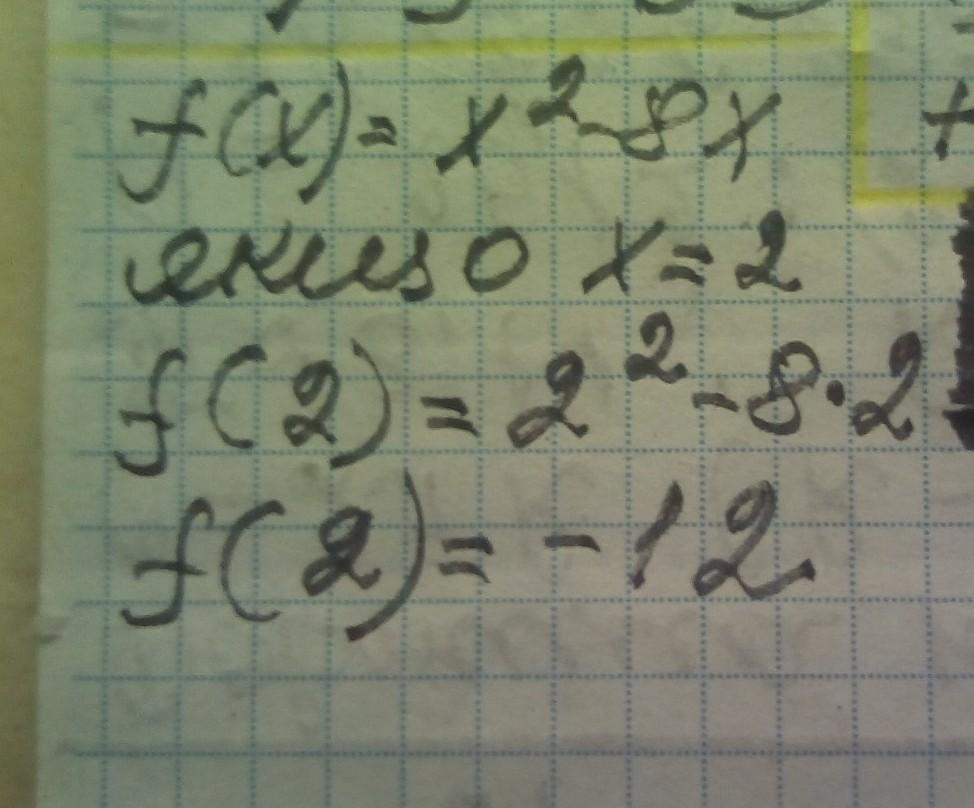 f(x) = x² - 8x
якщо x = 2
f(2) = 2² - 8·2
f(2) = -12